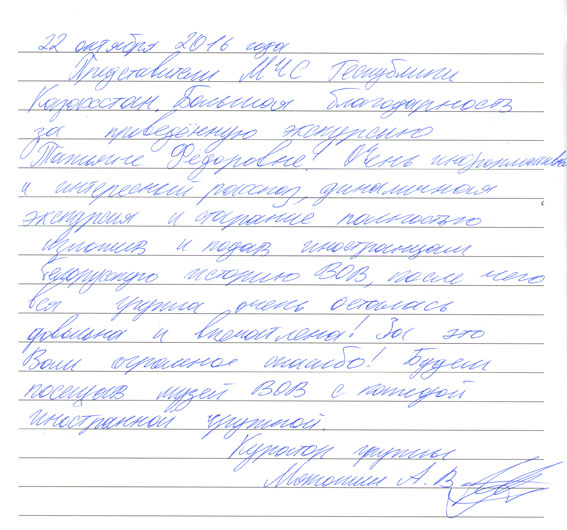 22 октября 2016 года
Представители МЧС Республики
Казахстан. Большая благодарность
за проведённую экскурсию
Татьяне Фёдоровне! Очень информативный
и интересный рассказ, динамичная
экскурсия и старание полностью
изложив и подав иностранцам
белорусскую историю ВОВ, после чего
вся группа очень осталась
довольна и впечатлена! За это
Вам огромное спасибо! Будем
посещать музей ВОВ с каждой
иностранной группой.
Куратор группы
А. В.